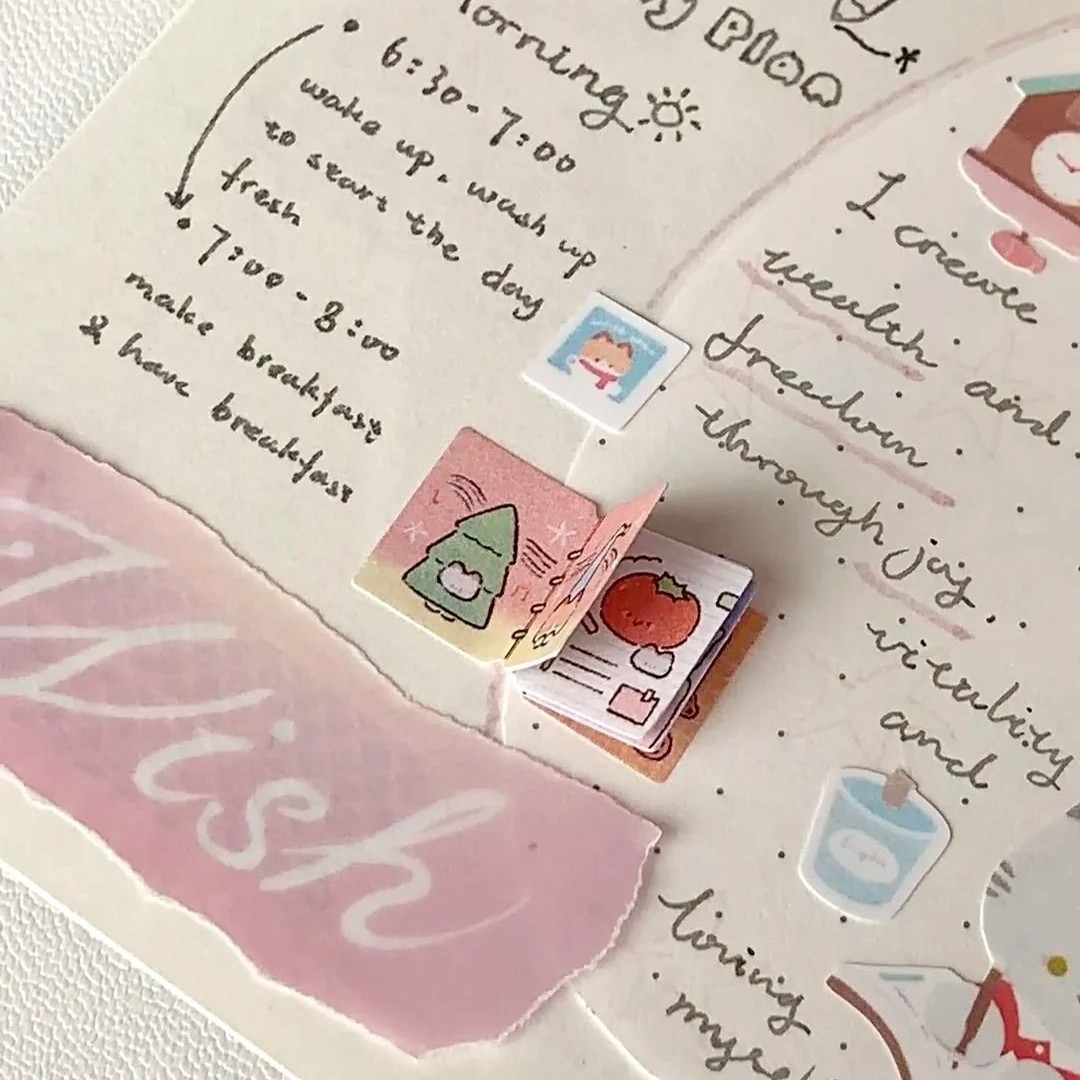 Plan
6:30 - 7:00
wake up, wash up
to start the day
fresh
7:00 - 8:00
make breakfast
& have breakfast
Wish
I create
wealth and
freedom
through joy,
vitality
and
loving